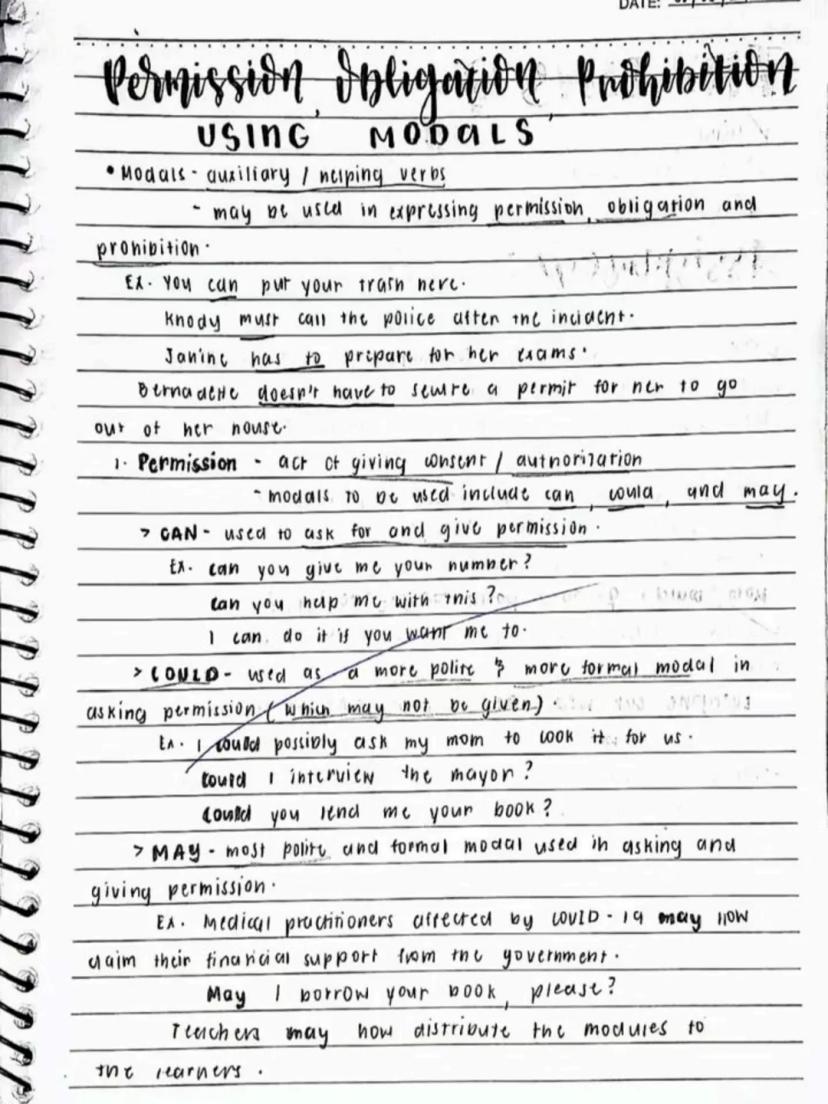 DATE:
Permission, Obligation, Prohibition
USING MODALS
• Modals - auxiliary / helping verbs
- may be used in expressing permission, obligation and
prohibition.
Ex. You can put your trash here.
Knody must call the police after the incident.
Janine has to prepare for her exams.
Bernadette doesn't have to secure a permit for her to go
out of her house.
1. Permission - act of giving consent / authorization
- modals to be used include can, could, and may.
> CAN - used to ask for and give permission.
Ex. Can you give me your number?
Can you help me with this?
I can do it if you want me to.
> COULD - used as a more polite & more formal modal in
asking permission (which may not be given).
Ex. I could possibly ask my mom to cook it for us.
Could I interview the mayor?
Could you lend me your book?
> MAY - most polite and formal modal used in asking and
giving permission.
Ex. Medical practitioners affected by COVID-19 may now
claim their financial support from the government.
May I borrow your book, please?
Teachers may now distribute the modules to
the learners.